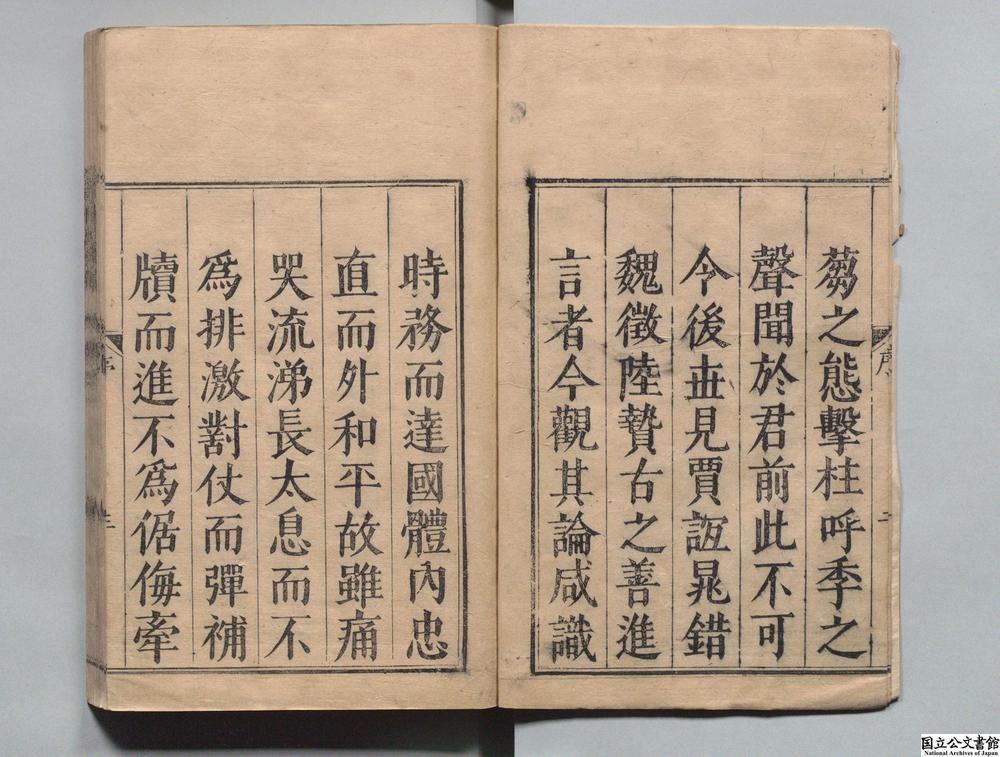 蒭之態擊柱呼季之
聲聞於君前此不可
令後世見賈誼晁錯
魏徵陸贄古之善進
言者今觀其論咸識
時務而達國體內忠
直而外和平故雖痛
哭流涕長太息而不
為排激對仗而彈補
牘而進不為倨侮牽
序
二
序
三
国立公文書館
National Archives of Japan